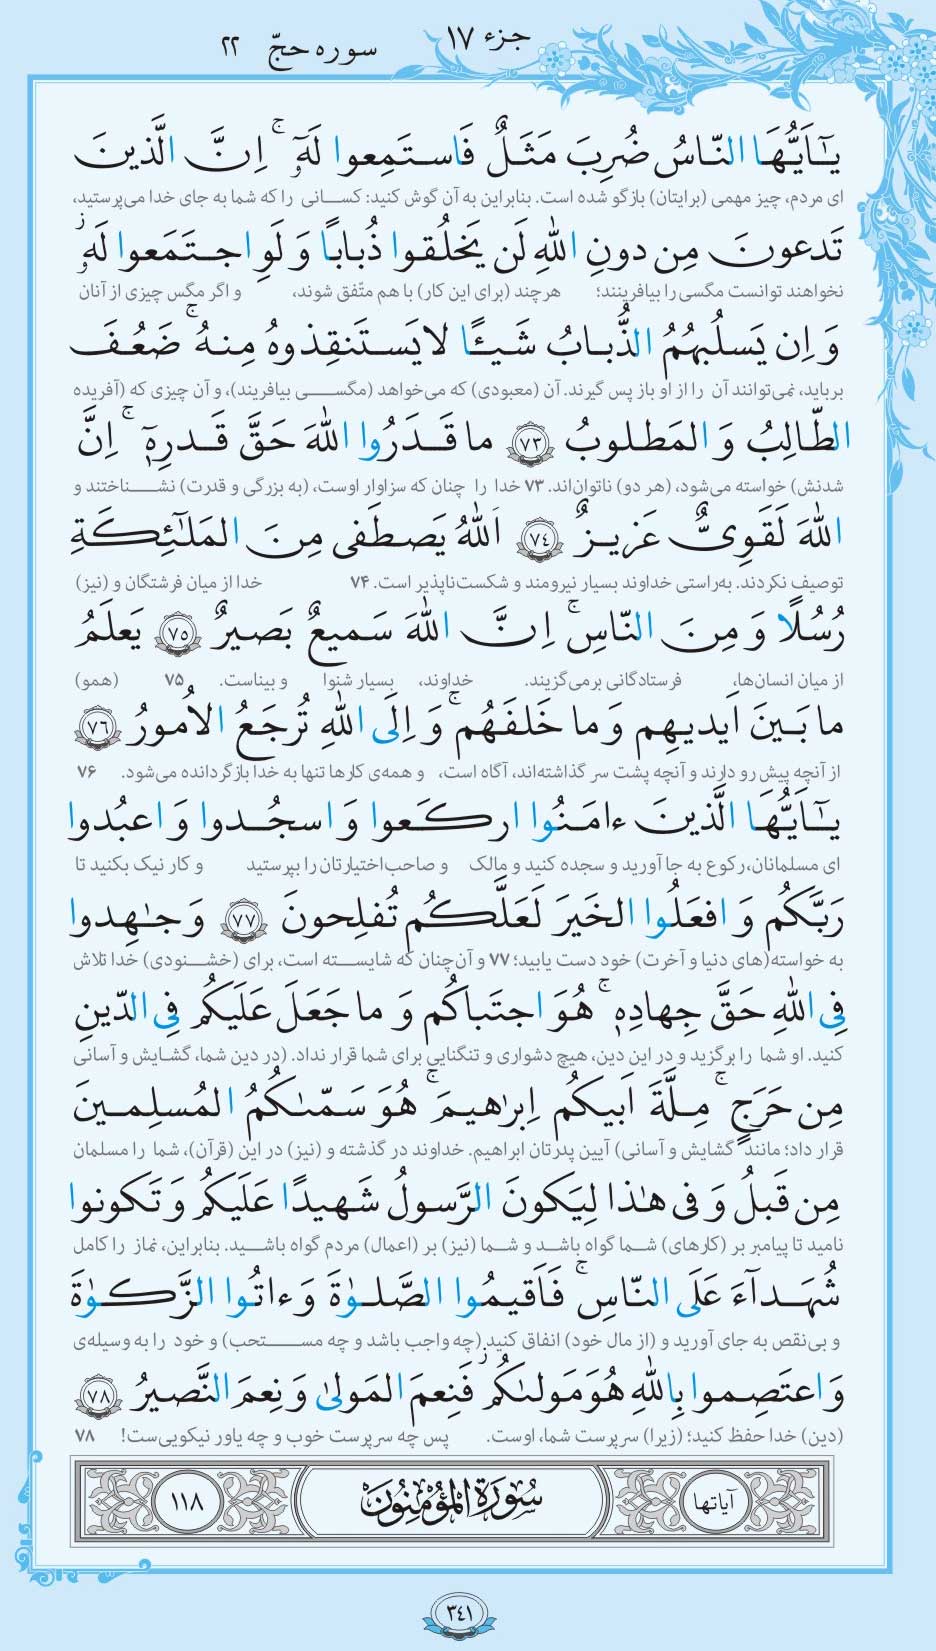 جزء ۱۷
سوره حجّ ۲۲
يـٰٓاَيُّهَا النّاسُ ضُرِبَ مَثَلٌ فَاستَمِعوا لَهٗٓ ۚ اِنَّ الَّذينَ
ای مردم، چیز مهمی (برایتان) بازگو شده است. بنابراین به آن گوش کنید: کسانی را که شما به جای خدا می‌پرستید،
تَدعونَ مِن دونِ اللهِ لَن يَخلُقوا ذُبابًا وَ لَوِ اجتَمَعوا لَهٗ ۖ
نخواهند توانست مگسی را بیافرینند؛ هرچند (برای این کار) با هم متّفق شوند، و اگر مگس چیزی از آنان
وَ اِن يَسلُبهُمُ الذُّبابُ شَيـًٔا لا يَستَنقِذوهُ مِنهُ ۚ ضَعُفَ
برباید، نمی‌توانند آن را از او باز پس گیرند. آن (معبودی) که می‌خواهد (مگسی بیافریند)، و آن چیزی که (آفریده
الطّالِبُ وَ المَطلوبُ ۷۳ ما قَدَرُوا اللهَ حَقَّ قَدرِهٖٓ ۚ اِنَّ
شدنش) خواسته می‌شود، (هر دو) ناتوان‌اند. ۷۳ خدا را چنان که سزاوار اوست، (به بزرگی و قدرت) نشناختند و
اللهَ لَقَوِىٌّ عَزيزٌ ۷۴ اَللهُ يَصطَفى مِنَ المَلٰٓئِكَةِ
توصیف نکردند. به‌راستی خداوند بسیار نیرومند و شکست‌ناپذیر است. ۷۴ خدا از میان فرشتگان و (نیز)
رُسُلًا وَ مِنَ النّاسِ ۚ اِنَّ اللهَ سَميعٌ بَصيرٌ ۷۵ يَعلَمُ
از میان انسان‌ها، فرستادگانی برمی‌گزیند. خداوند، بسیار شنوا و بیناست. ۷۵ (همو)
ما بَينَ اَيديهِم وَ ما خَلفَهُم ۚ وَ اِلَى اللهِ تُرجَعُ الاُمورُ ۷۶
از آنچه پیش رو دارند و آنچه پشت سر گذاشته‌اند، آگاه است، و همه‌ی کارها تنها به خدا بازگردانده می‌شود. ۷۶
يـٰٓاَيُّهَا الَّذينَ ءامَنُوا اركَعوا وَ اسجُدوا وَ اعبُدوا
ای مسلمانان، رکوع به جا آورید و سجده کنید و مالک و صاحب‌اختیارتان را بپرستید و کار نیک بکنید تا
رَبَّكُم وَ افعَلُوا الخَيرَ لَعَلَّكُم تُفلِحونَ ۷۷ وَ جـٰهِدوا
به خواسته(های دنیا و آخرت) خود دست یابید؛ ۷۷ و آن‌چنان که شایسته است، برای (خشنودی) خدا تلاش
فِى اللهِ حَقَّ جِهادِهٖ ۚ هُوَ اجتَباكُم وَ ما جَعَلَ عَلَيكُم فِى الدّينِ
کنید. او شما را برگزید و در این دین، هیچ دشواری و تنگنایی برای شما قرار نداد. (در دین شما، گشایش و آسانی
مِن حَرَجٍ ۚ مِلَّةَ اَبيكُم اِبرٰهيمَ ۚ هُوَ سَمّىٰكُمُ المُسلِمينَ
قرار داد؛ مانند گشایش و آسانی) آیین پدرتان ابراهیم. خداوند در گذشته و (نیز) در این (قرآن)، شما را مسلمان
مِن قَبلُ وَ فى هـٰذا لِيَكونَ الرَّسولُ شَهيدًا عَلَيكُم وَ تَكونوا
نامید تا پیامبر بر (کارهای) شما گواه باشد و شما (نیز) بر (اعمال) مردم گواه باشید. بنابراین، نماز را کامل
شُهَدآءَ عَلَى النّاسِ ۚ فَاَقيمُوا الصَّلوٰةَ وَ ءاتُوا الزَّكوٰةَ
و بی‌نقص به جای آورید و (از مال خود) انفاق کنید (چه واجب باشد و چه مستحب) و خود را به وسیله‌ی
وَ اعتَصِموا بِاللهِ هُوَ مَولىٰكُم ۖ فَنِعمَ المَولىٰ وَ نِعمَ النَّصيرُ ۷۸
(دین) خدا حفظ کنید؛ (زیرا) سرپرست شما، اوست. پس چه سرپرست خوب و چه یاور نیکویی‌ست! ۷۸
آیاتها سُورَةُ المُؤمِنُونَ ۱۱۸
۳۴۱